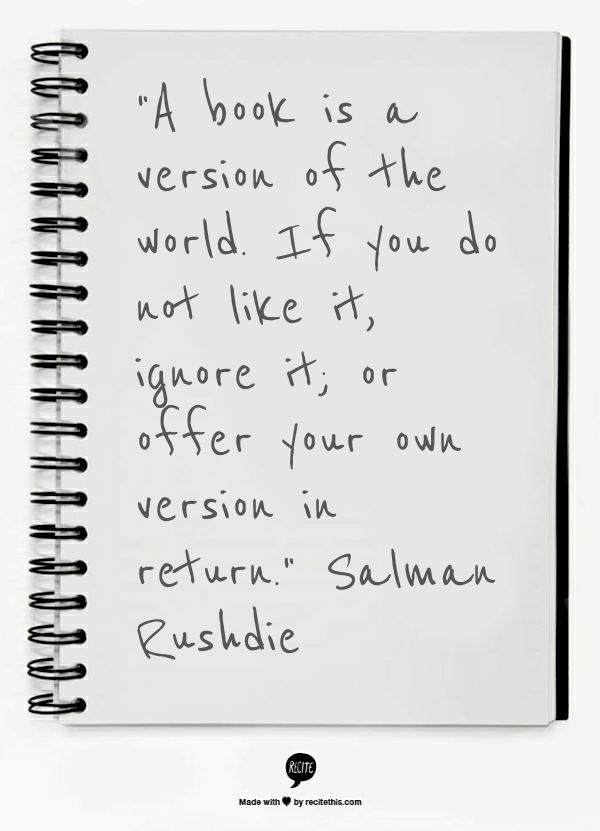 "A book is a
version of the
world. If you do
not like it,
ignore it; or
offer your own
version in
return." Salman
Rushdie
RECITE
Made with ♥ by recitethis.com